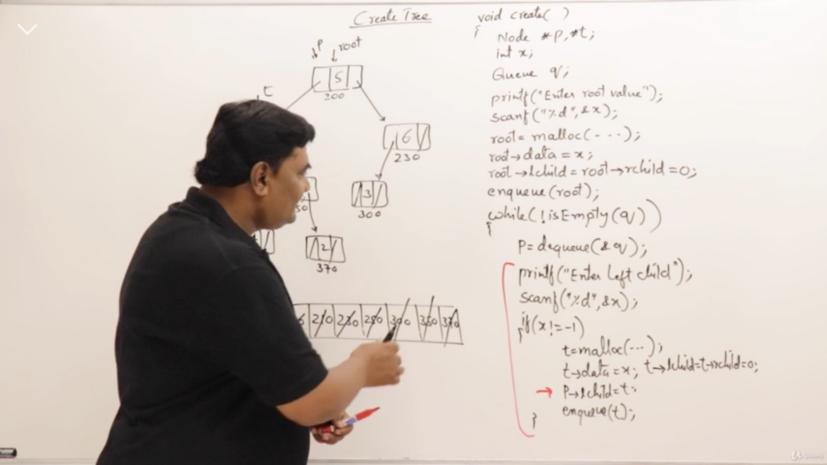 Create Tree
P
root
t
5
200
6
230
3
300
2
370
210
230
250
300
350
370
void create( )
{
Node *p,*t;
int x;
Queue q;
printf("Enter root value");
scanf("%d",&x);
root=malloc(---);
root→data=x;
root→lchild=root→rchild=0;
enqueue(root);
while(!isEmpty(q))
{
P=dequeue(&q);
printf("Enter Left child");
scanf("%d",&x);
if(x!=-1)
{
t=malloc(---);
t→data=x; t→lchild=t→rchild=0;
→ P→lchild=t;
enqueue(t);
}